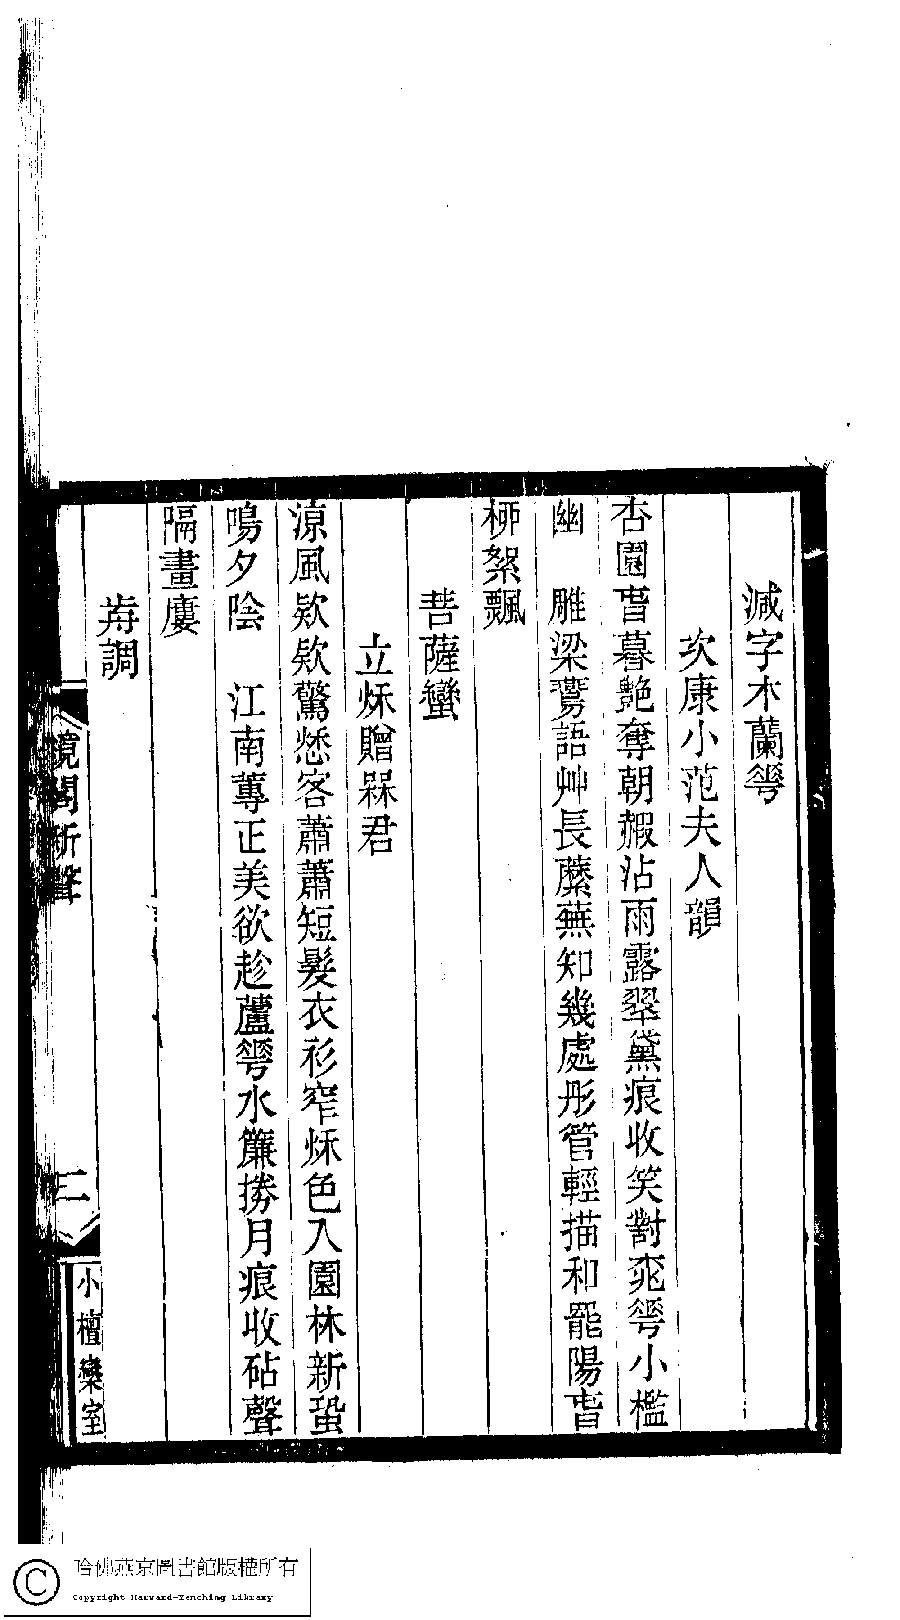 減字木蘭蕚
次康小范夫人韻
杏園旾暮艷奪朝霞沾雨露翠黛痕收笑對窕蕚小檻
幽　雕梁鷰語艸長蘼蕪知幾處彤管輕描和罷陽旾
柳絮飄
菩薩蠻
立秌贈槑君
涼風欵欵驚愁客蕭蕭短髮衣衫窄秌色入園林新蛩
鳴夕陰　江南蓴正美欲趁蘆蕚水簾捲月痕收砧聲
隔畫廔
歬調
鏡閣新聲
二
小檀欒室
哈佛燕京圖書館版權所有
Copyright Harvard-Yenching Library